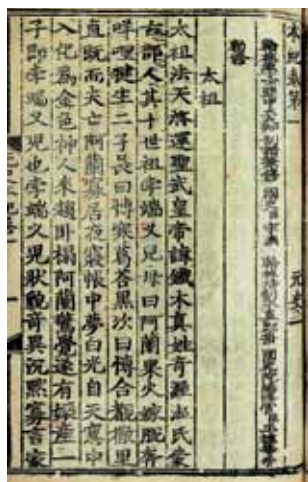 本紀第一 元史一
太祖
太祖法天啓運聖武皇帝諱鐵木真姓奇渥溫氏蒙
古部人其十世祖孛端叉兒母曰阿蘭果火嫁脫奔
咩哩犍生二子長曰博寒葛荅黑次曰博合覩撒里
直既而夫亡阿蘭寡居夜寢帳中夢白光自天窓中
入化爲金色神人來趨卧榻阿蘭驚覺遂有娠產一
子即孛端叉兒也孛端叉兒狀貌奇異沉默寡言家